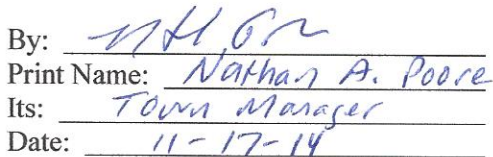 By:
Print Name: Nathan A. Poore
Its: Town Manager
Date: 11-17-14